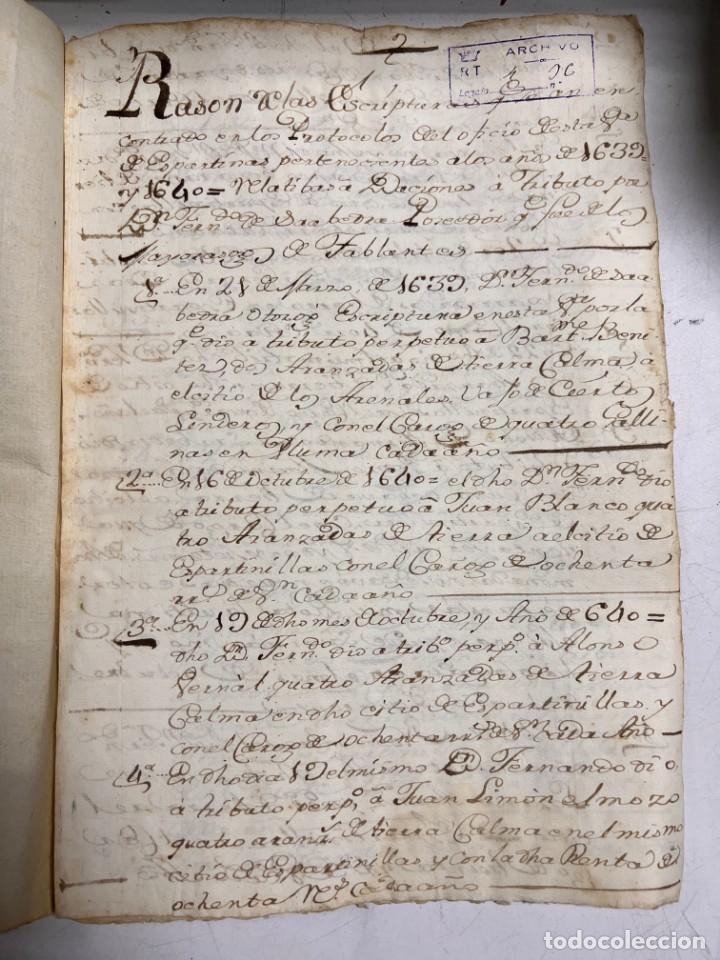 2
ARCHIVO
RT
Legajo
Rason de las Escripturas q.e se an en
contrado en los Protocolos del oficio de esta V.a
de Espartinas pertenecientes a los años de 1639
y 1640 = Relatibas â Daciones â tributo por
D.n Fern.do de Saabedra Poseedor q.e fue de los
Mayorazgos de Tablantes
1.a En 21 de Marzo, de 1639, D.n Fern.do de Saa
bedra Otorgó Escriptura en esta V.a por la
q.e dio a tributo perpetuo â Bart.me Beni
tez, dos Aranzadas de tierra Calma a
el citio de los Arenales, vajo de Ciertos
Linderos, y con el Cargo de quatro Galli
nas en Pluma cada año
2.a En 16 de Octubre de 1640 = el dho D.n Fern.do dio
a tributo perpetuo â Juan Blanco qua
tro Aranzadas de tierra a el citio de
Espartinillas con el Cargo de ochenta
rr.s de v.n cada año
3.a En 19 de dho mes de Octubre y Año de 640 =
dho D.n Fern.do dio a trib.o perp.o â Alonso
Vernàl quatro Aranzadas de tierra
Calma en dho citio de Espartinillas, y
con el Cargo de ochenta rr.s de v.n Cada Año
4.a En dho dia 19 el mismo D.n Fernando dio,
â tributo perp.o â Juan Limòn el mozo
quatro aranz.s de tierra Calma en el mismo
citio de Espartinillas, y con la dha Renta de
ochenta rr.s cada año
todocoleccion
todocoleccion.net